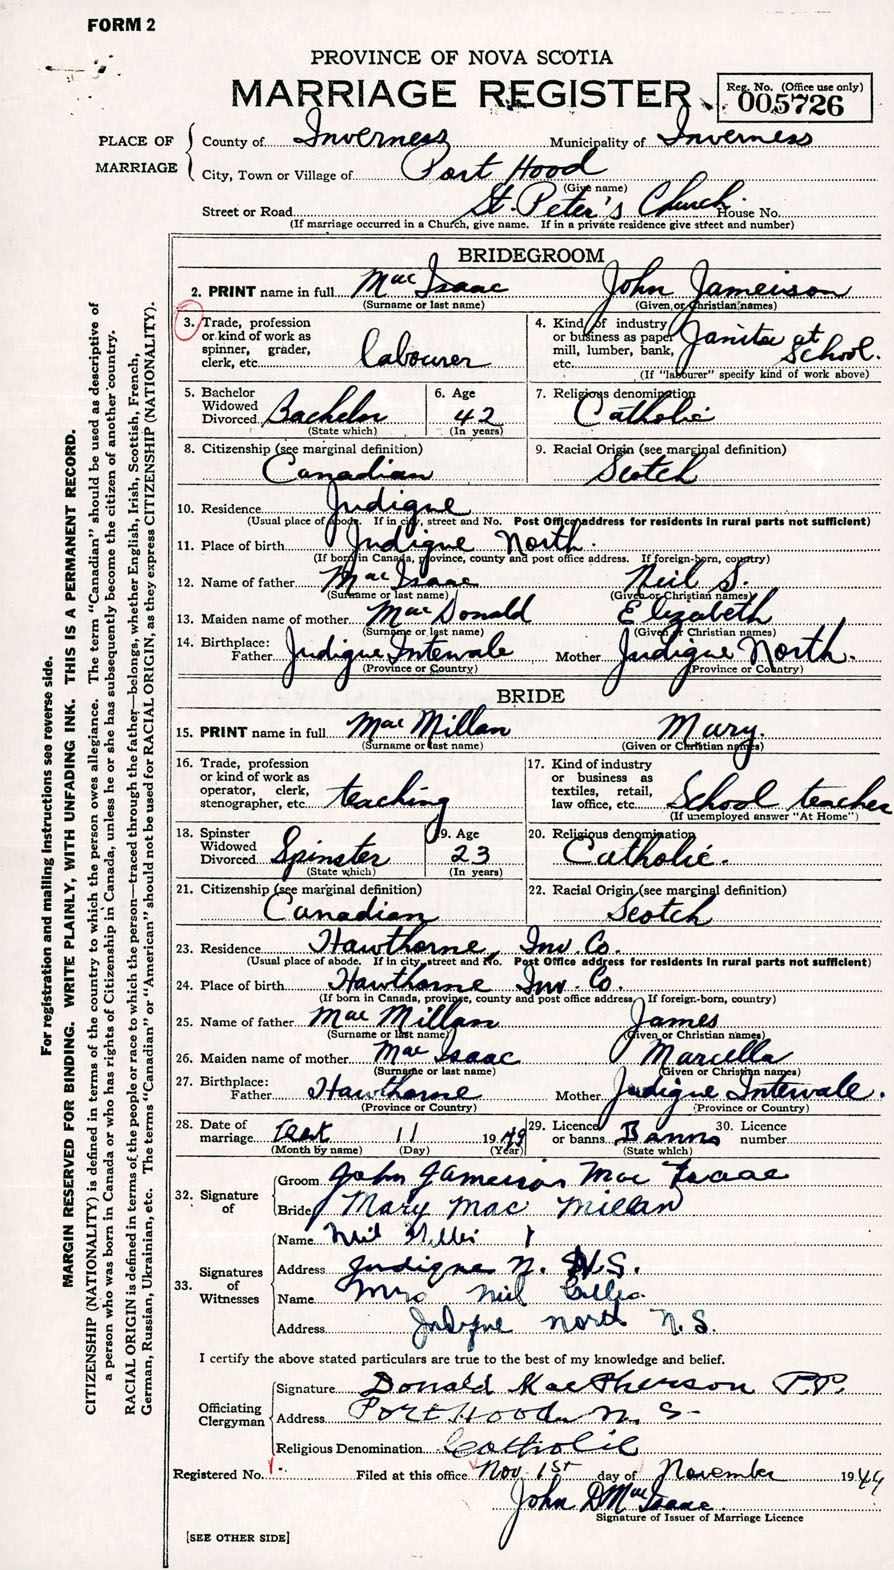 FORM 2
PROVINCE OF NOVA SCOTIA
MARRIAGE REGISTER
Reg. No. (Office use only)
005726
PLACE OF MARRIAGE
County of Inverness Municipality of Inverness
City, Town or Village of Port Hood
(Give name)
Street or Road St. Peter's Church House No.
(If marriage occurred in a Church, give name. If in a private residence give street and number)
BRIDEGROOM
2. PRINT name in full MacIsaac John Jameison
(Surname or last name) (Given or Christian names)
3. Trade, profession or kind of work as spinner, grader, clerk, etc. labourer
4. Kind of industry or business as paper mill, lumber, bank, etc. Janitor at School.
(If "labourer" specify kind of work above)
5. Bachelor Widowed Divorced Bachelor
(State which)
6. Age 42
(In years)
7. Religious denomination Catholic
8. Citizenship (see marginal definition) Canadian
9. Racial Origin (see marginal definition) Scotch
10. Residence Judique
(Usual place of abode. If in city, street and No. Post Office address for residents in rural parts not sufficient)
11. Place of birth Judique North.
(If born in Canada, province, county and post office address. If foreign-born, country)
12. Name of father MacIsaac Neil S.
(Surname or last name) (Given or Christian names)
13. Maiden name of mother MacDonald Elizabeth
(Surname or last name) (Given or Christian names)
14. Birthplace: Father Judique Intervale Mother Judique North.
(Province or Country) (Province or Country)
BRIDE
15. PRINT name in full MacMillan Mary.
(Surname or last name) (Given or Christian names)
16. Trade, profession or kind of work as operator, clerk, stenographer, etc. teaching
17. Kind of industry or business as textiles, retail, law office, etc. School teacher
(If unemployed answer "At Home")
18. Spinster Widowed Divorced Spinster
(State which)
19. Age 23
(In years)
20. Religious denomination Catholic.
21. Citizenship (see marginal definition) Canadian
22. Racial Origin (see marginal definition) Scotch
23. Residence Hawthorne, Inv. Co.
(Usual place of abode. If in city, street and No. Post Office address for residents in rural parts not sufficient)
24. Place of birth Hawthorne Inv. Co.
(If born in Canada, province, county and post office address. If foreign-born, country)
25. Name of father MacMillan James
(Surname or last name) (Given or Christian names)
26. Maiden name of mother MacIsaac Marcella
(Surname or last name) (Given or Christian names)
27. Birthplace: Father Hawthorne Mother Judique Intervale.
(Province or Country) (Province or Country)
28. Date of marriage 11 1949
(Month by name) (Day) (Year)
29. Licence or banns Banns
(State which)
30. Licence number
32. Signature of
Groom John Jameison MacIsaac
Bride Mary MacMillan
33. Signatures of Witnesses
Name Neil
Address Judique N. N.S.
Name Mrs Neil Gillis
Address Judique North N.S.
I certify the above stated particulars are true to the best of my knowledge and belief.
Officiating Clergyman
Signature Donald MacPherson P.P.
Address Port Hood N. S
Religious Denomination Catholic
Registered No. Filed at this office Nov. 1st day of November 1949
John D MacIsaac
Signature of Issuer of Marriage Licence
[SEE OTHER SIDE]
For registration and mailing instructions see reverse side.
MARGIN RESERVED FOR BINDING. WRITE PLAINLY, WITH UNFADING INK. THIS IS A PERMANENT RECORD.
CITIZENSHIP (NATIONALITY) is defined in terms of the country to which the person owes allegiance. The term "Canadian" should be used as descriptive of
a person who was born in Canada or who has rights of Citizenship in Canada, unless he or she has subsequently become the citizen of another country.
RACIAL ORIGIN is defined in terms of the people or race to which the person—traced through the father—belongs, whether English, Irish, Scottish, French,
German, Russian, Ukrainian, etc. The terms "Canadian" or "American" should not be used for RACIAL ORIGIN, as they express CITIZENSHIP (NATIONALITY).